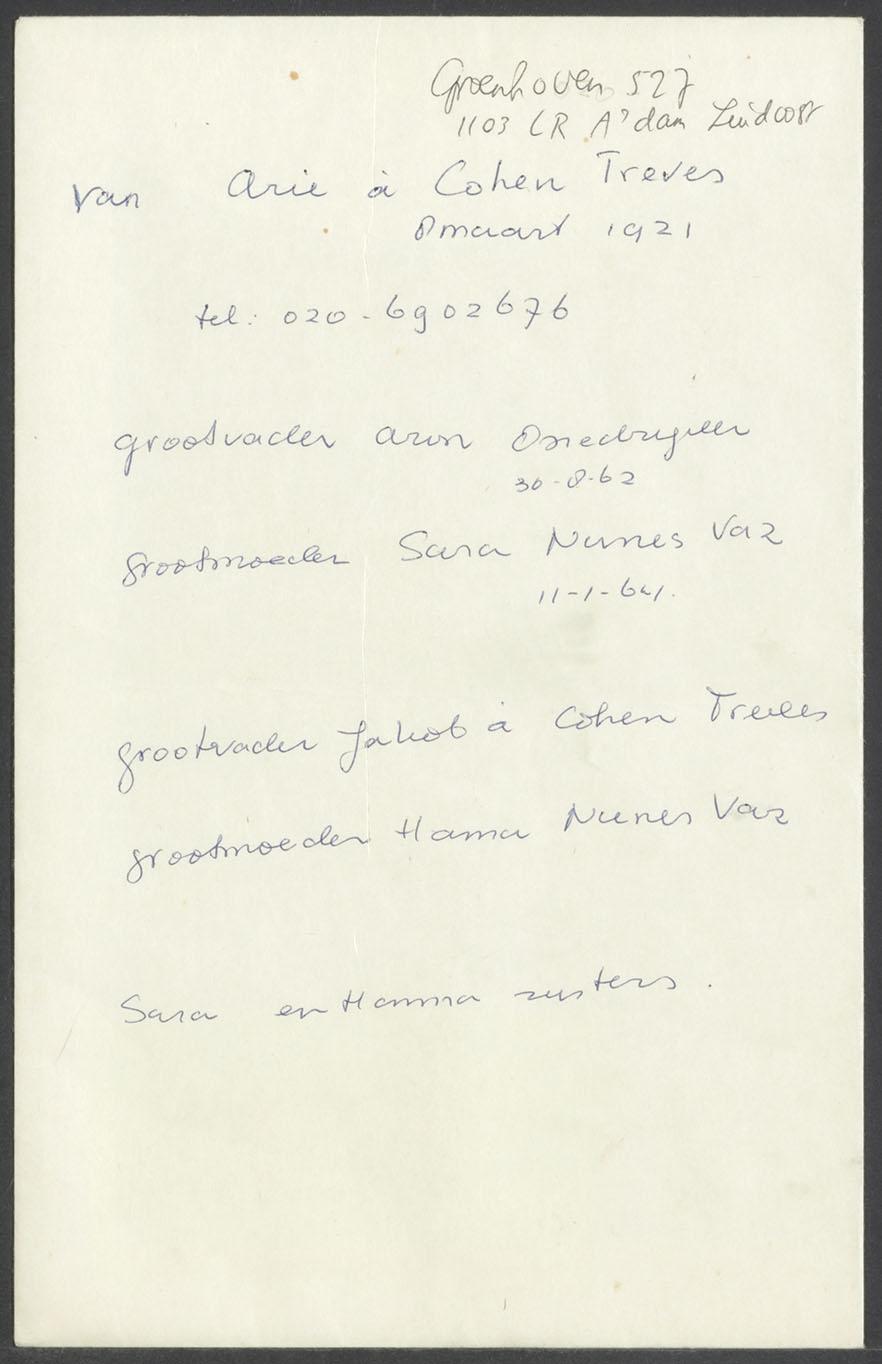 Groenhoven 527
1103 LR A'dam Zuidoost
van Arie à Cohen Treves
8 maart 1921
tel: 020-6902676
grootvader Aron
30-8-62
grootmoeder Sara Nunes Vaz
11-1-64.
grootvader Jakob à Cohen Treves
grootmoeder Hanna Nunes Vaz
Sara en Hanna zusters.